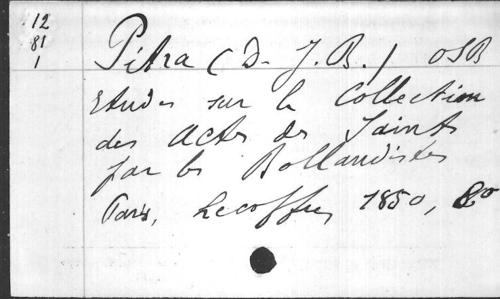 12
81
1
Pitra (D. J. B.) OSB
Etudes sur la Collection
des Actes des Saints
par les Bollandistes
Paris, Lecoffre, 1850, 8o